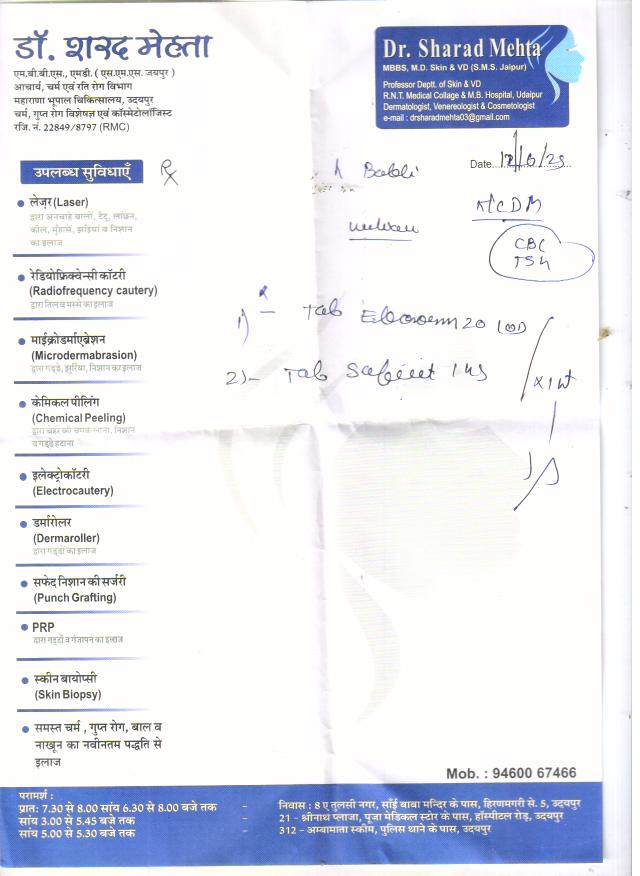 डॉ. शरद मेहता
एम.बी.बी.एस., एमडी. ( एस.एम.एस. जयपुर )
आचार्य, चर्म एवं रति रोग विभाग
महाराणा भूपाल चिकित्सालय, उदयपुर
चर्म, गुप्त रोग विशेषज्ञ एवं कॉस्मेटोलॉजिस्ट
रजि. नं. 22849/8797 (RMC)
Dr. Sharad Mehta
MBBS, M.D. Skin & VD (S.M.S. Jaipur)
Professor Deptt. of Skin & VD
R.N.T. Medical Collage & M.B. Hospital, Udaipur
Dermatologist, Venereologist & Cosmetologist
e-mail : drsharadmehta03@gmail.com
Date
उपलब्ध सुविधाएँ
CBC
TSH
1) Tab 20
2)- Tab
लेज़र (Laser)
द्वारा अनचाहे बालों, टेटू, लांछन,
कील, मुँहासे, झाइयां व निशान
का इलाज
रेडियोफ्रिक्वेन्सी कॉटरी
(Radiofrequency cautery)
द्वारा तिल व मस्से का इलाज
माईक्रोडर्माएब्रेशन
(Microdermabrasion)
द्वारा गड्डे, झुर्रिया, निशान का इलाज
केमिकल पीलिंग
(Chemical Peeling)
द्वारा चेहरे की चमक लाना, निशान
व गड्डे हटाना
इलेक्ट्रोकॉटरी
(Electrocautery)
डर्मारोलर
(Dermaroller)
द्वारा गड्डों का इलाज
सफेद निशान की सर्जरी
(Punch Grafting)
PRP
द्वारा गड्डों व गंजापन का इलाज
स्कीन बायोप्सी
(Skin Biopsy)
समस्त चर्म , गुप्त रोग, बाल व
नाखून का नवीनतम पद्धति से
इलाज
Mob. : 94600 67466
परामर्श :
प्रातः 7.30 से 8.00 सांय 6.30 से 8.00 बजे तक - निवास : 8 ए तुलसी नगर, साँई बाबा मन्दिर के पास, हिरणमगरी से. 5, उदयपुर
सांय 3.00 से 5.45 बजे तक - 21 - श्रीनाथ प्लाजा, पूजा मेडिकल स्टोर के पास, हॉस्पीटल रोड़, उदयपुर
सांय 5.00 से 5.30 बजे तक - 312 - अम्बामाता स्कीम, पुलिस थाने के पास, उदयपुर